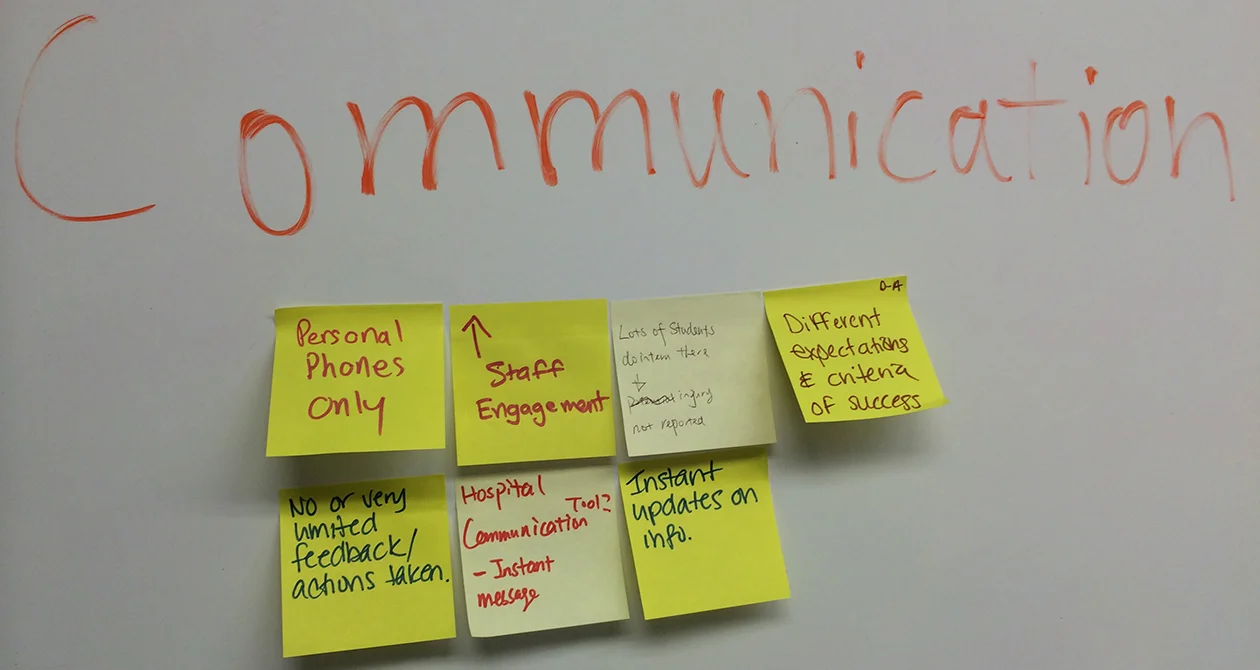 Communication
Personal
Phones
only
↑
Staff
Engagement
Lots of Students
do intern there
↓
injury
not reported
D-A
Different
expectations
& criteria
of success
No or very
limited
feedback/
actions taken.
Hospital
Tool?
Communication
- Instant
message
Instant
updates on
info.